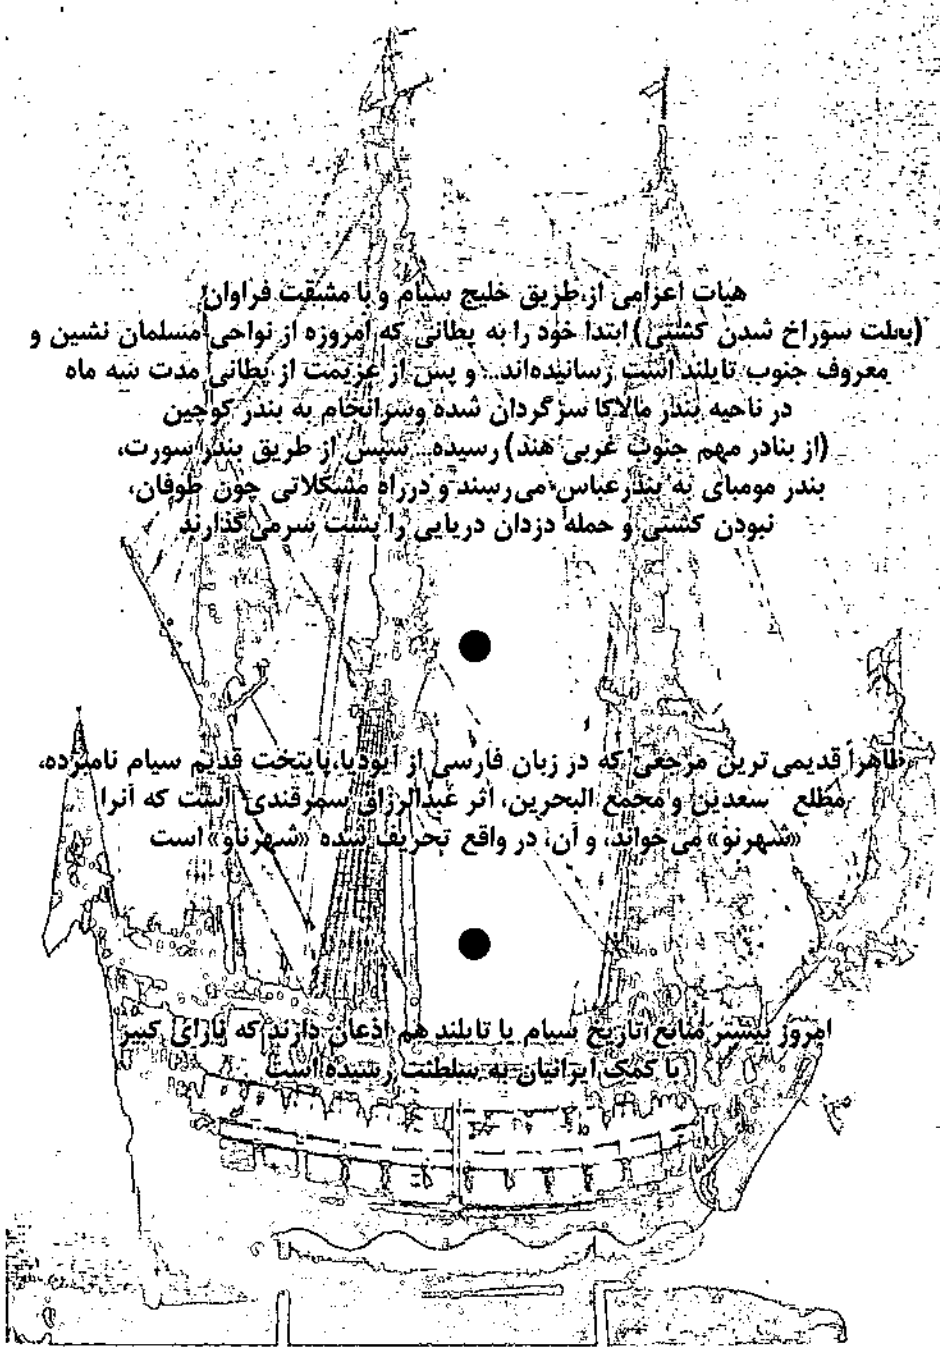 هیات اعزامی از طریق خلیج سیام و با مشقت فراوان
(بعلت سوراخ شدن کشتی) ابتدا خود را به پطانی که امروزه از نواحی مسلمان نشین و
معروف جنوب تایلند است رسانیده‌اند.. و پس از عزیمت از پطانی مدت سه ماه
در ناحیه بندر مالاکا سرگردان شده وسرانجام به بندر کوچین
(از بنادر مهم جنوب غربی هند) رسیده.. سپس از طریق بندر سورت،
بندر مومبای به بندرعباس می‌رسند و درراه مشکلاتی چون طوفان،
نبودن کشتی و حمله دزدان دریایی را پشت سرمی‌گذارند
●
ظاهراً قدیمی‌ترین مرجعی که در زبان فارسی از آیودیا، پایتخت قدیم سیام نامبرده،
مطلع سعدین و مجمع البحرین، اثر عبدالرزاق سمرقندی است که آنرا
«شهرنو» می‌خواند، و آن، در واقع تحریف شده «شهرناو» است
●
امروز بیشتر منابع تاریخ سیام یا تایلند هم اذعان دارند که نارای کبیر
با کمک ایرانیان به سلطنت رسیده است